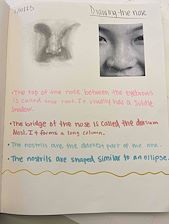 Drawing the nose
• The top of the nose between the eyebrows
is called the root. It usually has a subtle
shadow.
• The bridge of the nose is called the dorsum
Nasi. It forms a long column.
• The nostrils are the darkest part of the nose.
• The nostrils are shaped similar to an ellipse.